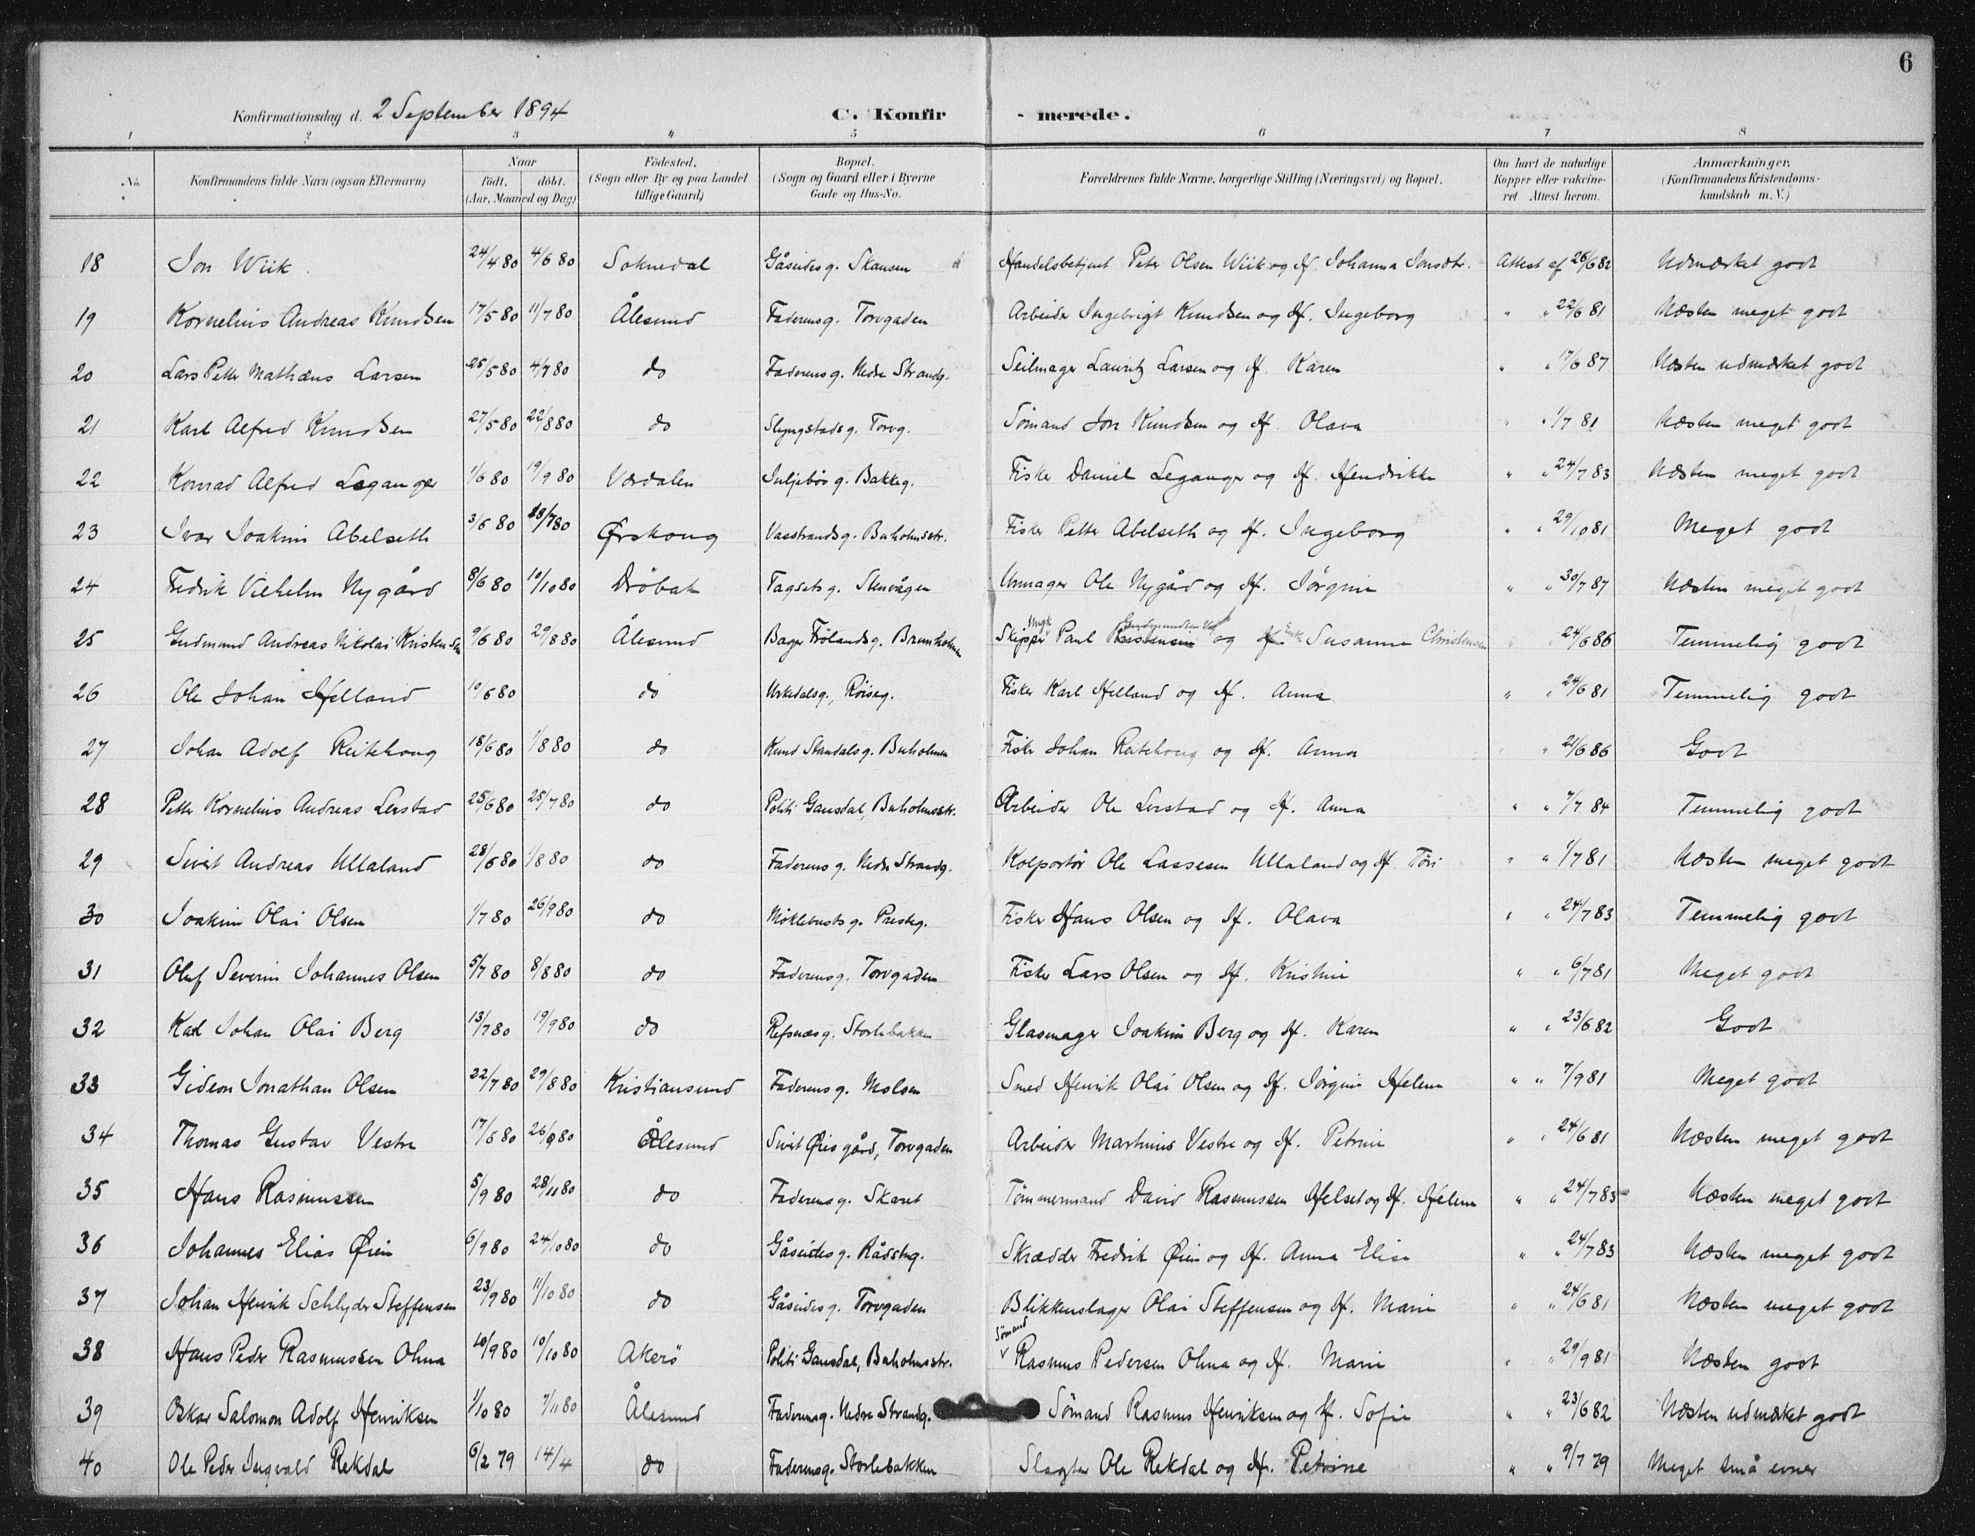 6
Konfirmationsdag d. 2 September 1894 C. Konfir - merede.
1 2 3 4 5 6 7 8
No. Konfirmandens fulde Navn (ogsaa Efternavn) Naar födt. döbt. (Aar, Maaned og Dag) Födested. (Sogn eller By og paa Landet tillige Gaard) Bopæl. (Sogn og Gaard eller i Byerne Gade og Hus-No. Forældrenes fulde Navne, borgerlige Stilling (Næringsvei) og Bopæl. Om havt de naturlige Kopper eller vakcineret Attest herom. Anmærkninger. (Konfirmandens Kristendomskundskab m. V.)
18 Jon Wiik. 24/4 80 4/6 80 Soknedal Gåseidesg. Skansen Handelsbetjent Peter Olsen Wiik og H. Johanna Jonsdtr. Attest af 26/6 82 Udmærket godt
19 Kornelius Andreas Knudsen 17/5 80 11/7 80 Ålesund Faderensg. Torvgaden Arbeider Ingebrigt Knudsen og H. Ingeborg " " 22/6 81 Næsten meget godt
20 Lars Petter Mathæus Larsen 25/5 80 4/7 80 do Faderensg. Nedre Strandg. Seilmager Lauritz Larsen og H. Karen " " 17/6 87 Næsten udmærket godt
21 Karl Alfred Knudsen 27/5 80 22/8 80 do Slyngstadsg. Torvg. Sømand Jon Knudsen og H. Olava " " 1/7 81 Næsten meget godt
22 Konrad Alfred Leganger 1/6 80 19/9 80 Værdalen Juljebøsg. Bakkeg. Fisker Daniel Leganger og H. Hendrikke " " 24/7 83 Næsten meget godt
23 Ivar Joakim Abelseth 3/6 80 18/7 80 Ørskoug Vasstrandsg. Buholmsstr. Fisker Petter Abelseth og H. Ingeborg " " 29/10 81 Meget godt
24 Fredrik Vilhelm Nygård 8/6 80 10/10 80 Drøbak Tagsetsg. Stenvågen Urmager Ole Nygård og H. Jørgine " " 30/7 87 Næsten meget godt
25 Gudmund Andreas Nikolai Kristensen 9/6 80 29/8 80 Ålesund Bager Frølandsg. Brunholmen Skipper Paul og Enke Susanne Christensen " " 24/6 86 Temmelig godt
26 Ole Johan Helland 10/6 80 do Urkedalsg., Røiseg. Fisker Karl Helland og H. Anna " " 24/6 81 Temmelig godt
27 Johan Adolf Reitehoug 18/6 80 1/8 80 do Knud Standalsg. Buholmen Fisker Johan Reitehoug og H. Anna " " 21/6 86 Godt
28 Petter Kornelius Andreas Lerstad 25/6 80 25/7 80 do Politi Gausdal, Buholmsstr. Arbeider Ole Lerstad og H. Anna " " 7/7 84 Temmelig godt
29 Sivert Andreas Ullaland 28/6 80 1/8 80 do Faderensg. Nedre Strandg. Kolportør Ole Lassesen Ullaland og H. Tøri " " 1/7 81 Næsten meget godt
30 Joakim Olai Olsen 1/7 80 26/9 80 do Møklebustsg. Presteg. Fisker Hans Olsen og H. Olava " " 24/7 83 Temmelig godt
31 Oluf Severin Johannes Olsen 5/7 80 8/8 80 do Faderensg. Torvgaden Fisker Lars Olsen og H. Kristine " " 6/7 81 Meget godt
32 Karl Johan Olai Berg 13/7 80 19/9 80 do Refsnæsg. Storlebakken Glasmager Joakim Berg og H. Karen " " 23/6 82 Godt
33 Gideon Jonathan Olsen 22/7 80 29/8 80 Kristiansund Faderensg. Molsen Smed Henrik Olai Olsen og H. Jørgine Helene " " 7/9 81 Meget godt
34 Thomas Gustav Vestre 17/8 80 26/9 80 Ålesund Sivert Øiesgård, Torvgaden Arbeider Martinus Vestre og H. Petrine " " 24/6 81 Næsten meget godt
35 Hans Rasmussen 5/9 80 28/11 80 do Faderensg. Skaret Tømmermand David Rasmussen Helset og H. Helene " " 24/7 83 Næsten meget godt
36 Johannes Elias Øien 6/9 80 24/10 80 do Gåseidesg. Rådstug. Skrædder Fredrik Øien og H. Anna Elise " " 24/7 83 Næsten meget godt
37 Johan Henrik Schlyder Steffensen 23/9 80 11/10 80 do Gåseidesg. Torvgaden Blikkenslager Olai Steffensen og H. Marie " " 24/6 81 Næsten meget godt
38 Hans Peder Rasmussen Ohna 10/9 80 10/10 80 Akerø Politi Gausdal, Buholmsstr. Sømand Rasmus Pedersen Ohna og H. Marie " " 29/9 81 Næsten godt
39 Oskar Salomon Adolf Henriksen 1/10 80 7/11 80 Ålesund Faderensg. Nedre Strandg. Sømand Rasmus Henriksen og H. Sofie " " 23/6 82 Næsten udmærket godt
40 Ole Peder Ingvald Rekdal 6/2 79 14/4 do Faderensg. Storlebakken Slagter Ole Rekdal og H. Petrine " " 9/7 79 Meget små evner